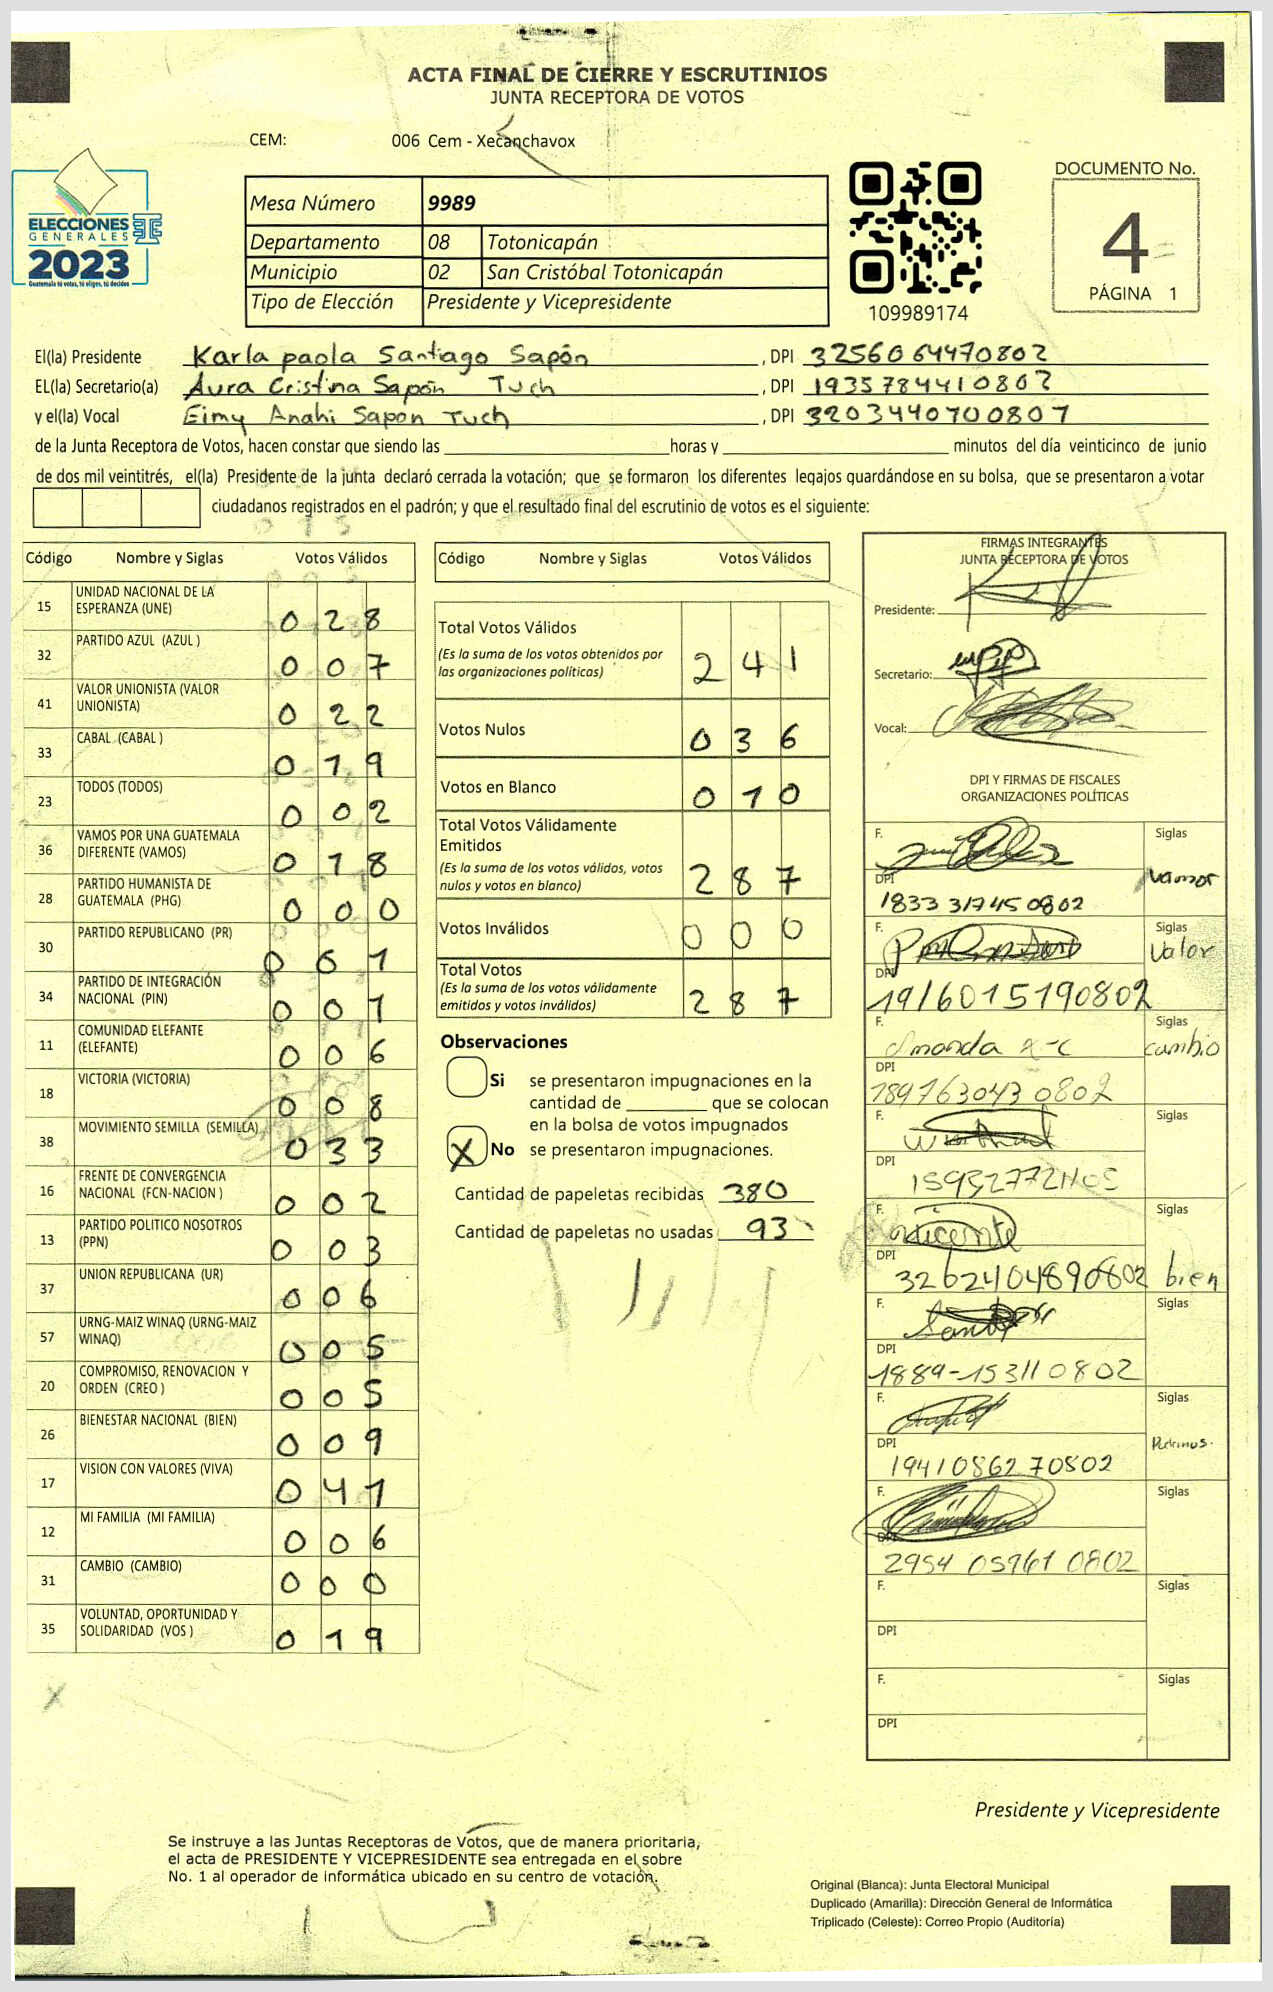 ACTA FINAL DE CIERRE Y ESCRUTINIOS
JUNTA RECEPTORA DE VOTOS
CEM: 006 Cem - Xecanchavox
ELECCIONES
GENERALES
2023
Guatemala tú votas, tú eliges, tú decides
Mesa Número 9989
Departamento 08 Totonicapán
Municipio 02 San Cristóbal Totonicapán
Tipo de Elección Presidente y Vicepresidente
109989174
DOCUMENTO No.
4
PÁGINA 1
El(la) Presidente Karla paola Santiago Sapón, DPI 3256064470802
EL(la) Secretario(a) Aura Cristina Sapón Tuch, DPI 1935784410802
y el(la) Vocal Eimy Anahi Sapon Tuch, DPI 3203440700807
de la Junta Receptora de Votos, hacen constar que siendo las horas y minutos del día veinticinco de junio
de dos mil veintitrés, el(la) Presidente de la junta declaró cerrada la votación; que se formaron los diferentes legajos guardándose en su bolsa, que se presentaron a votar
ciudadanos registrados en el padrón; y que el resultado final del escrutinio de votos es el siguiente:
Código Nombre y Siglas Votos Válidos
15 UNIDAD NACIONAL DE LA ESPERANZA (UNE) 028
32 PARTIDO AZUL (AZUL ) 007
41 VALOR UNIONISTA (VALOR UNIONISTA) 022
33 CABAL (CABAL ) 019
23 TODOS (TODOS) 002
36 VAMOS POR UNA GUATEMALA DIFERENTE (VAMOS) 018
28 PARTIDO HUMANISTA DE GUATEMALA (PHG) 000
30 PARTIDO REPUBLICANO (PR) 001
34 PARTIDO DE INTEGRACIÓN NACIONAL (PIN) 001
11 COMUNIDAD ELEFANTE (ELEFANTE) 006
18 VICTORIA (VICTORIA) 008
38 MOVIMIENTO SEMILLA (SEMILLA) 033
16 FRENTE DE CONVERGENCIA NACIONAL (FCN-NACION ) 002
13 PARTIDO POLITICO NOSOTROS (PPN) 003
37 UNION REPUBLICANA (UR) 006
57 URNG-MAIZ WINAQ (URNG-MAIZ WINAQ) 005
20 COMPROMISO, RENOVACION Y ORDEN (CREO ) 005
26 BIENESTAR NACIONAL (BIEN) 009
17 VISION CON VALORES (VIVA) 041
12 MI FAMILIA (MI FAMILIA) 006
31 CAMBIO (CAMBIO) 000
35 VOLUNTAD, OPORTUNIDAD Y SOLIDARIDAD (VOS ) 019
Código Nombre y Siglas Votos Válidos
Total Votos Válidos 241
(Es la suma de los votos obtenidos por
las organizaciones políticas)
Votos Nulos 036
Votos en Blanco 010
Total Votos Válidamente
Emitidos 287
(Es la suma de los votos válidos, votos
nulos y votos en blanco)
Votos Inválidos 000
Total Votos 287
(Es la suma de los votos válidamente
emitidos y votos inválidos)
Observaciones
Si se presentaron impugnaciones en la
cantidad de que se colocan
en la bolsa de votos impugnados
X No se presentaron impugnaciones.
Cantidad de papeletas recibidas 380
Cantidad de papeletas no usadas 93
FIRMAS INTEGRANTES
JUNTA RECEPTORA DE VOTOS
Presidente:
Secretario:
Vocal:
DPI Y FIRMAS DE FISCALES
ORGANIZACIONES POLÍTICAS
F. Siglas
DPI vamos
1833 31745 0802
F. Siglas
Valor
DPI
1916015190802
F. Siglas
Amanda cambio
DPI
189763043 0802
F. Siglas
DPI
F. Siglas
Vicente
DPI
3262404890802 bien
F. Siglas
DPI
1889-15311 0802
F. Siglas
DPI
19410862 70802
F. Siglas
DPI
2954 05961 0802
F. Siglas
DPI
F. Siglas
DPI
Presidente y Vicepresidente
Se instruye a las Juntas Receptoras de Votos, que de manera prioritaria,
el acta de PRESIDENTE Y VICEPRESIDENTE sea entregada en el sobre
No. 1 al operador de informática ubicado en su centro de votación.
Original (Blanca): Junta Electoral Municipal
Duplicado (Amarilla): Dirección General de Informática
Triplicado (Celeste): Correo Propio (Auditoría)